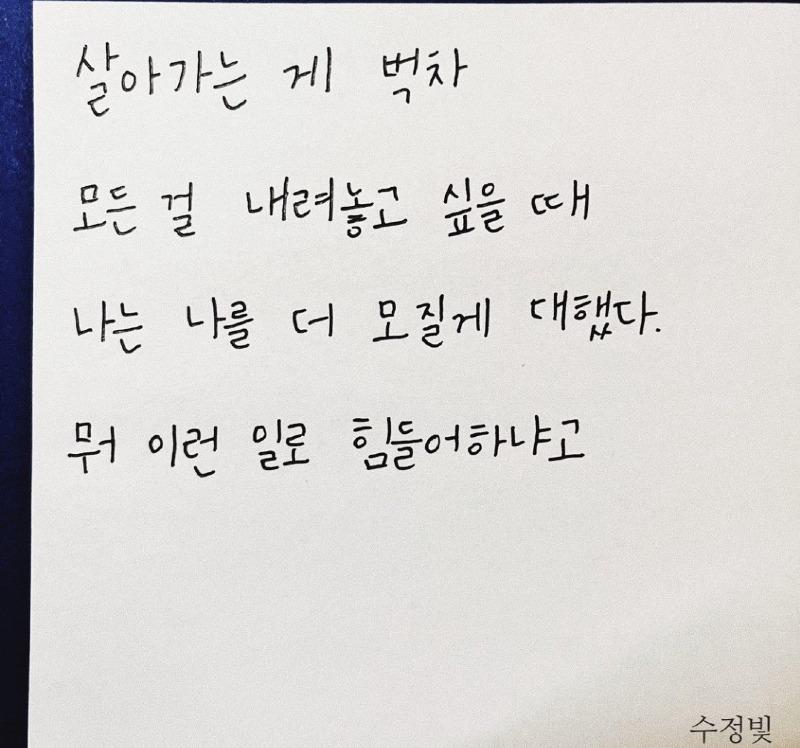 살아가는 게 벅차
모든 걸 내려놓고 싶을 때
나는 나를 더 모질게 대했다.
뭐 이런 일로 힘들어하냐고
수정빛